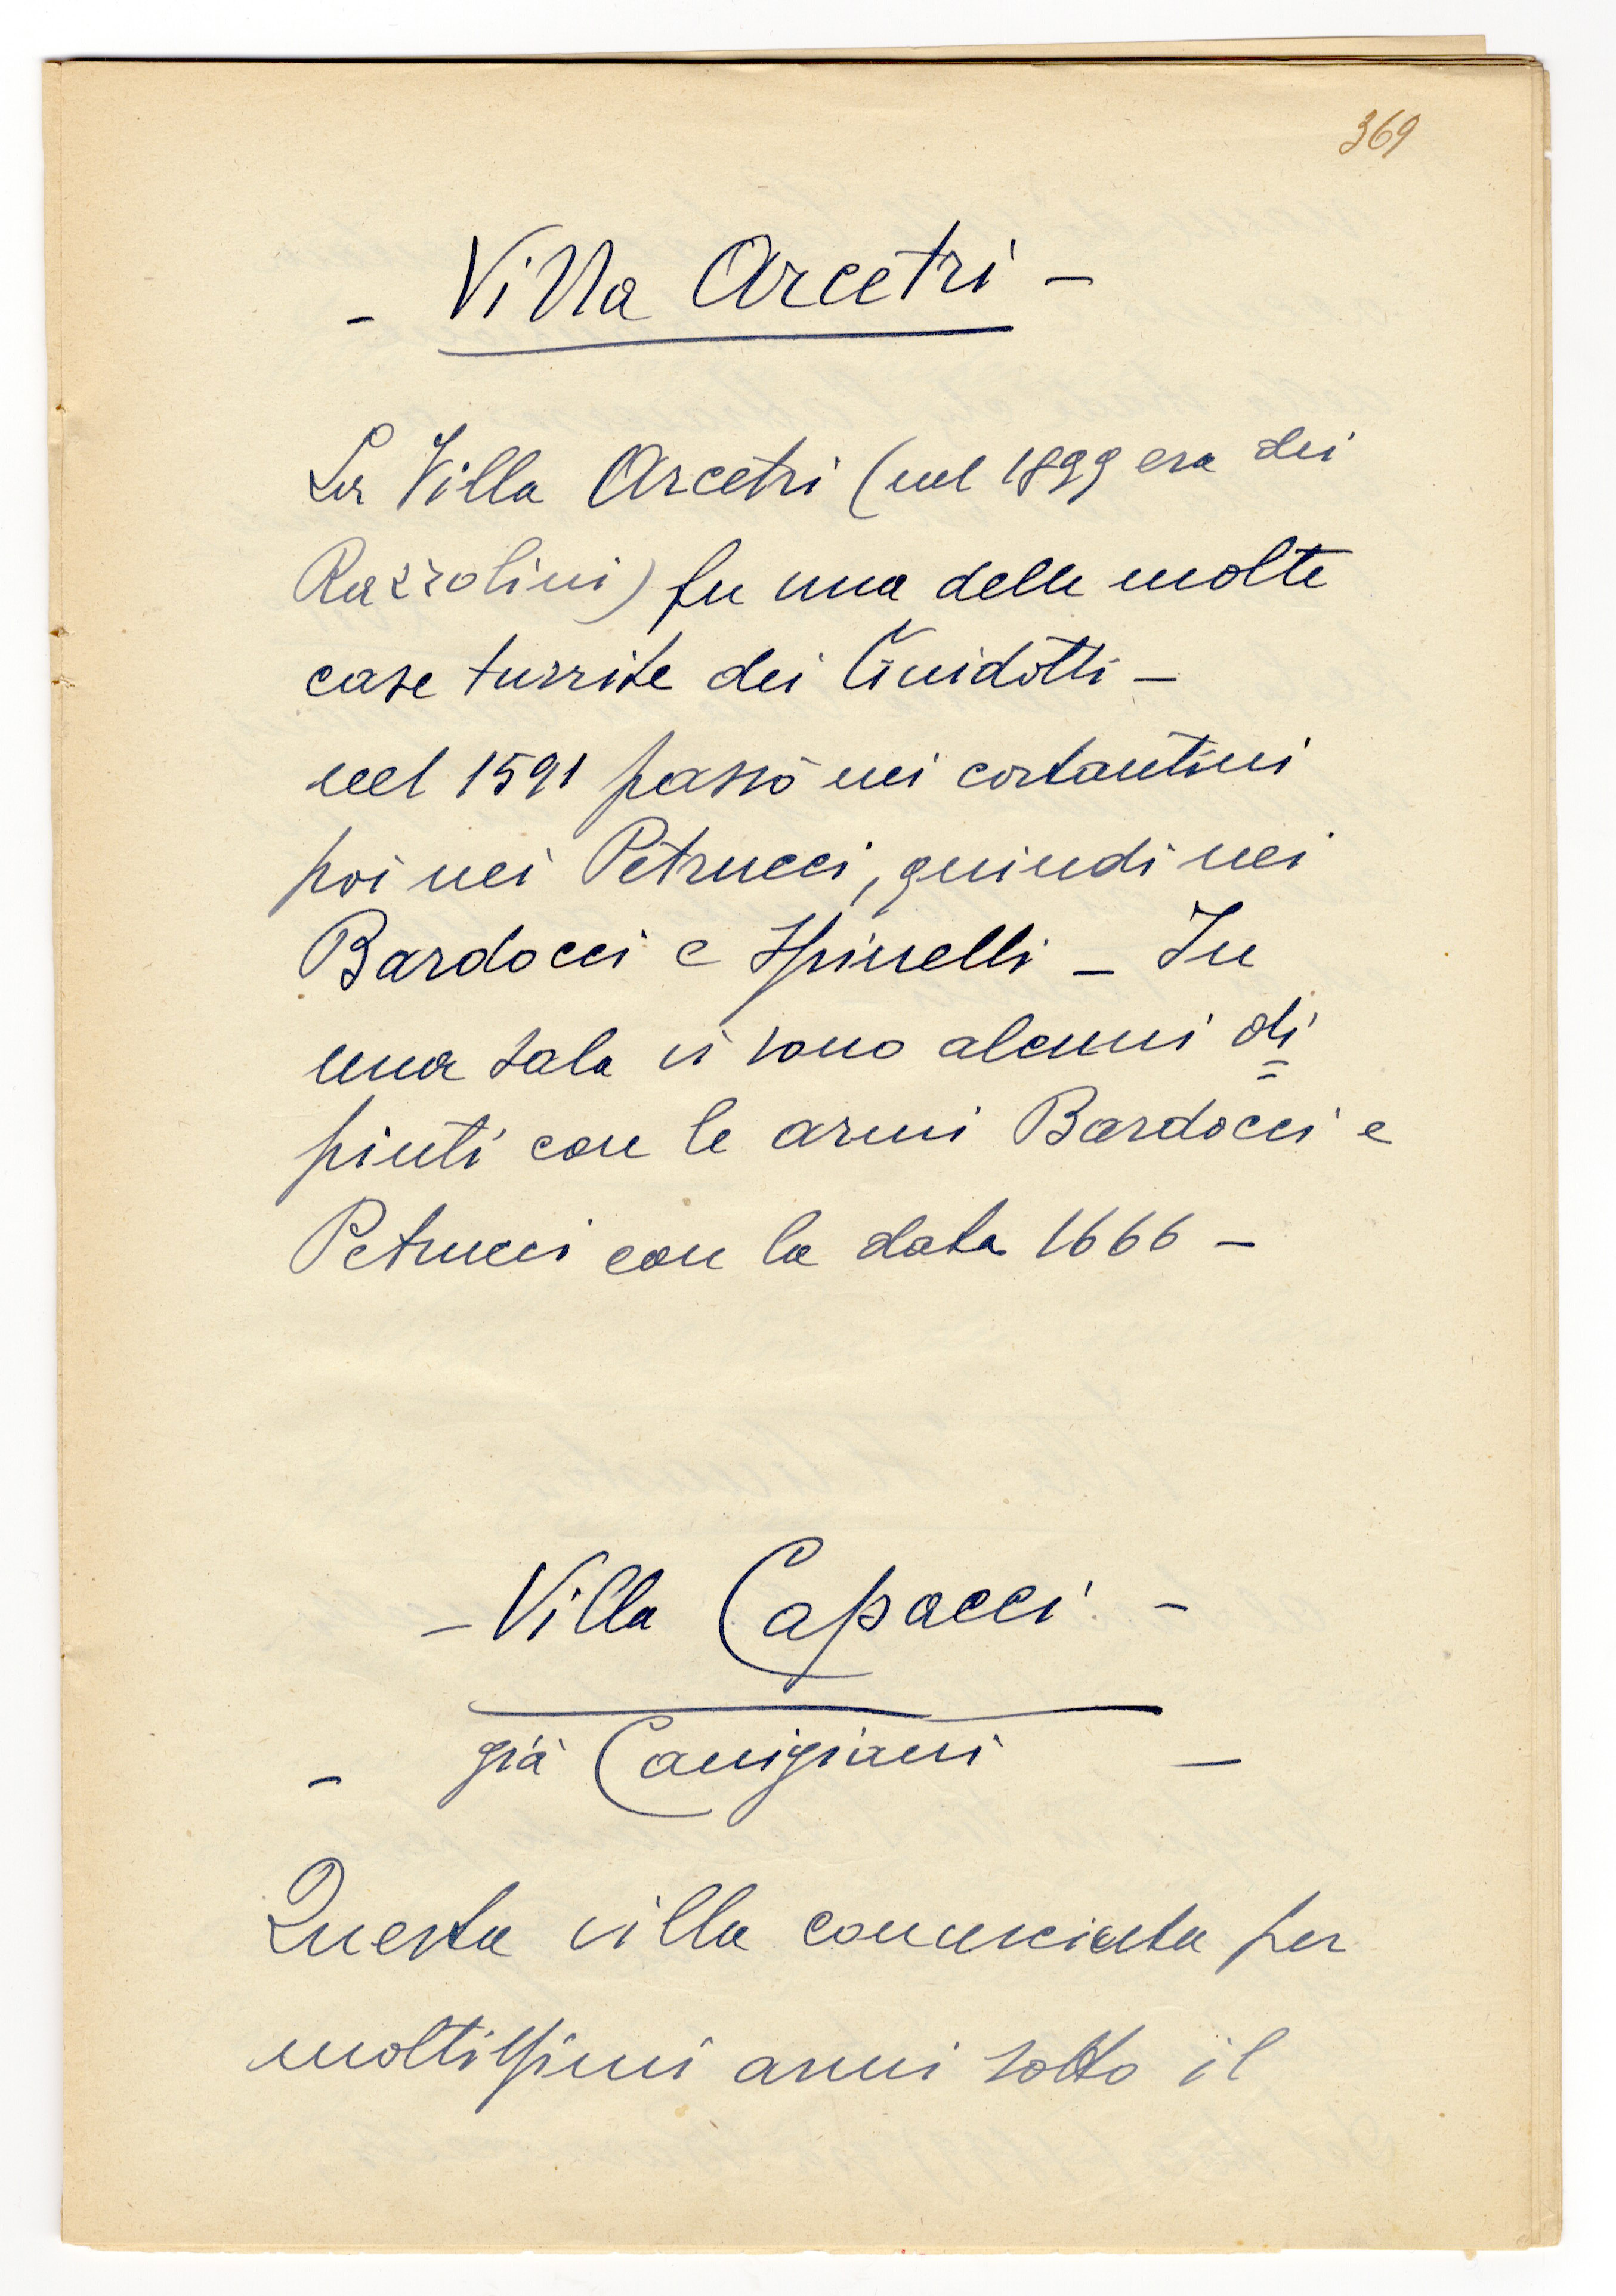 369
- Villa Arcetri -
La Villa Arcetri (nel 1899 era dei
Razzolini) fu una delle molte
case turrite dei Guidotti -
nel 1591 passò nei costantini
poi nei Petrucci, quindi nei
Bardocci e Spinelli - In
una sala vi sono alcuni di=
pinti con le armi Bardocci e
Petrucci con la data 1666 -
- Villa Capacci -
- già Canigiani -
Questa villa conosciuta per
moltissimi anni sotto il